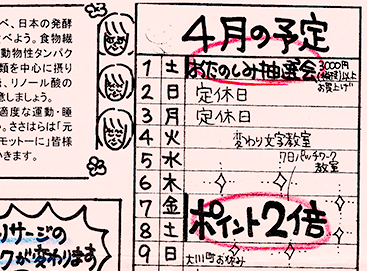 べ、日本の発酵
べよう。食物繊
動物性タンパク
類を中心に摂り
、リノール酸の
意しましょう。
適度な運動・睡
。ささらは「元
モットーに」皆様
いきます。
リサージの
クが変わります
4月の予定
1 土 おたのしみ抽選会 3,000円
以上
お買上げ
2 日 定休日
3 月 定休日
4 火 変わり文字教室
5 水 7日パッチワーク
教室
6 木
7 金 ポイント2倍
8 土
9 日 大川町お休み